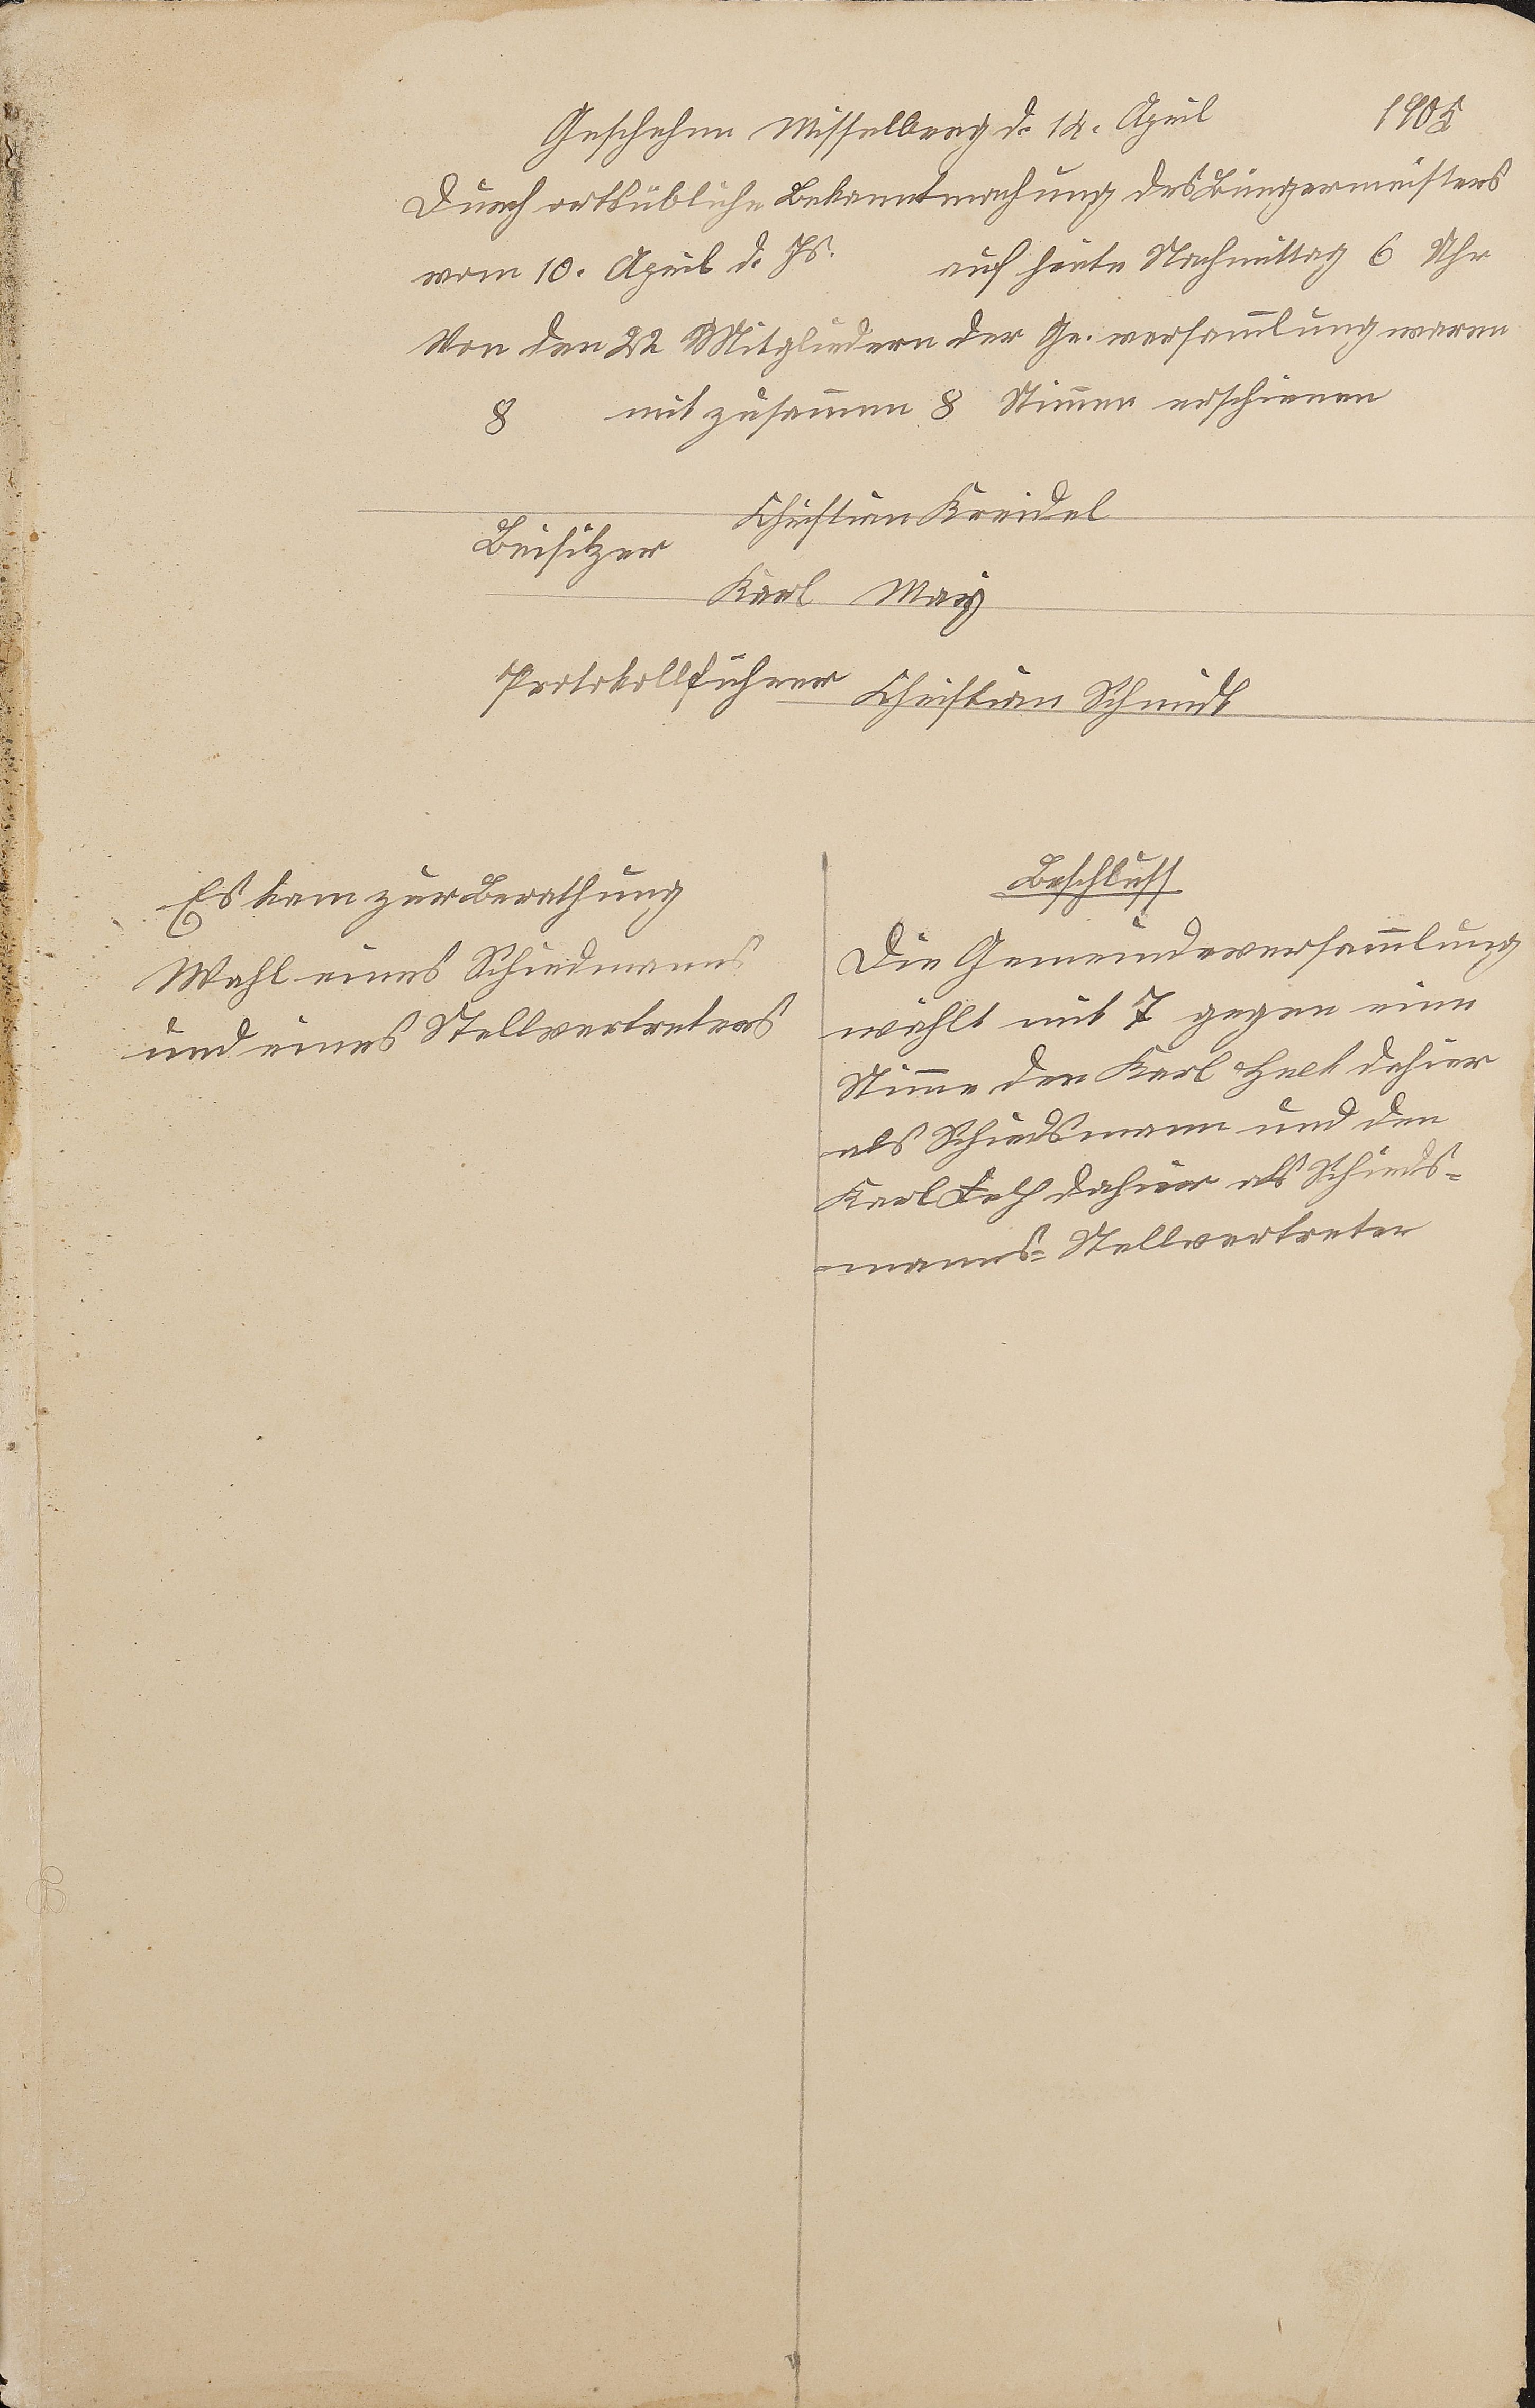 Geschehen Misselberg d. 14. April 1905
Durch ortsübliche Bekanntmachung des Bürgermeisters
vom 10. April d. Js. auf heute Nachmittag 6 Uhr
Von den 22 Mitgliedern der Ge. versam̄lung waren
8 mit zusam̄en 8 Stim̄en erschienen
Christian Kreidel
Beisitzer
Karl May
Protokollführer Christian Schmidt
Es kam zur Berathung
Wahl eines Schiedmanns
und eines Stellvertreters
Beschluss
Die Gemeindeversam̄lung
wählt mit 7 gegen eine
Stim̄e den Karl dahier
als Schiedsmann und den
Karl dahier als Schieds=
manns=Stellvertreter